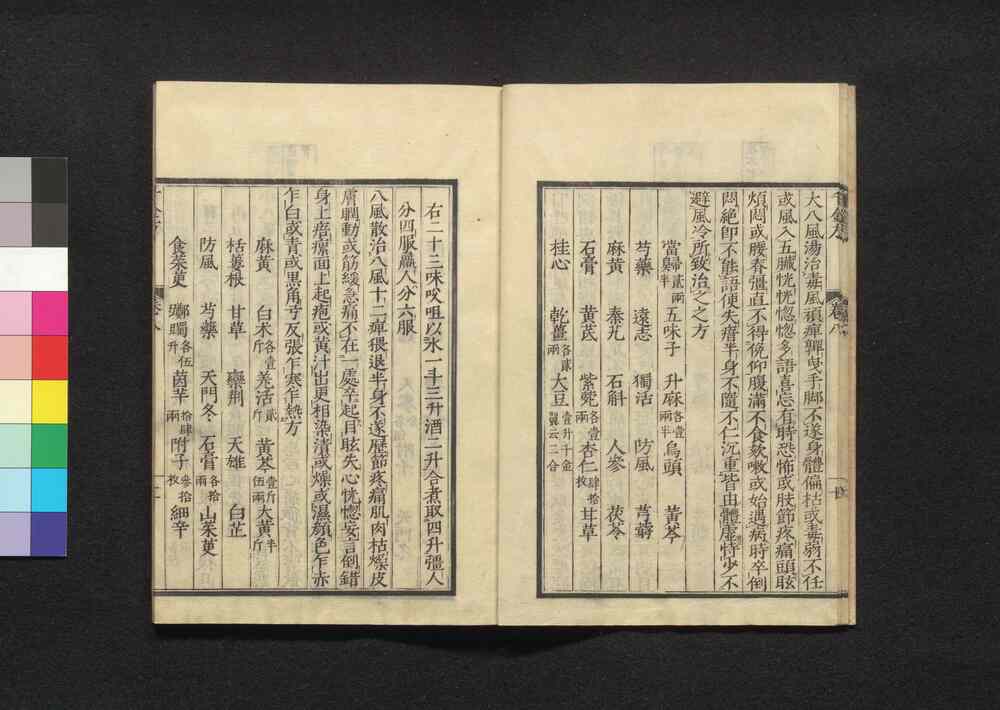 大八風湯治毒風頑痺嚲曳手脚不遂身體偏枯或毒弱不任
或風入五臟恍恍惚惚多語喜忘有時恐怖或肢節疼痛頭眩
煩悶或腰脊彊直不得俛仰腹滿不食欬嗽或始遇病時卒倒
悶絶卽不能語便失瘖半身不隨不仁沉重皆由體虛恃少不
避風冷所致治之之方
當歸貳兩半 五味子 升麻各壹兩半 烏頭 黃芩
芍藥 遠志 獨活 防風 芎藭
麻黃 秦艽 石斛 人參 茯苓
石膏 黃芪 紫菀各壹兩 杏仁肆拾枚 甘草
桂心 乾薑各貳兩 大豆壹升千金翼云二合
右二十三味㕮咀以水一斗三升酒二升合煮取四升彊人
分四服羸人分六服
八風散治八風十二痺猥退半身不遂歷節疼痛肌肉枯燥皮
膚瞤動或筋緩急痛不在一處卒起目眩失心恍惚妄言倒錯
身上瘖瘰面上起疱或黃汁出更相染漬或燥或濕顏色乍赤
乍白或青或黑角弓反張乍寒乍熱方
麻黃 白朮各壹斤 羌活貳斤 黃芩壹斤伍兩 大黃半斤
栝蔞根 甘草 欒荊 天雄 白芷
防風 芍藥 天門冬 石膏各拾兩 山茱萸
食茱萸 躑躅各伍升 茵芋拾肆兩 附子參拾枚 細辛
卷八